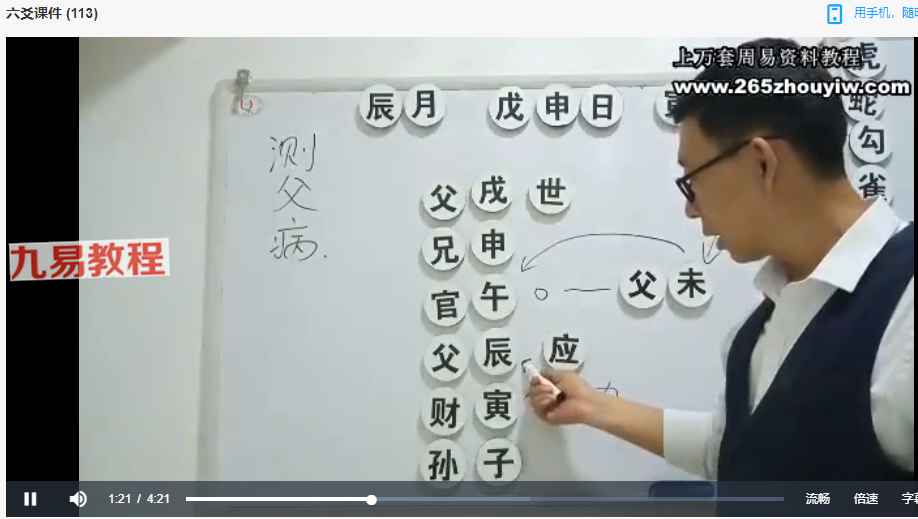 六爻课件 (113)
用手机，随
上万套周易资料教程
www.265zhouyiw.com
辰 月 戊 申 日
虎
蛇
勾
雀
测父病.
父 戌 世
兄 申
官 午 父 未
父 辰 应
财 寅
孙 子
九易教程
1:21 / 4:21
流畅 倍速